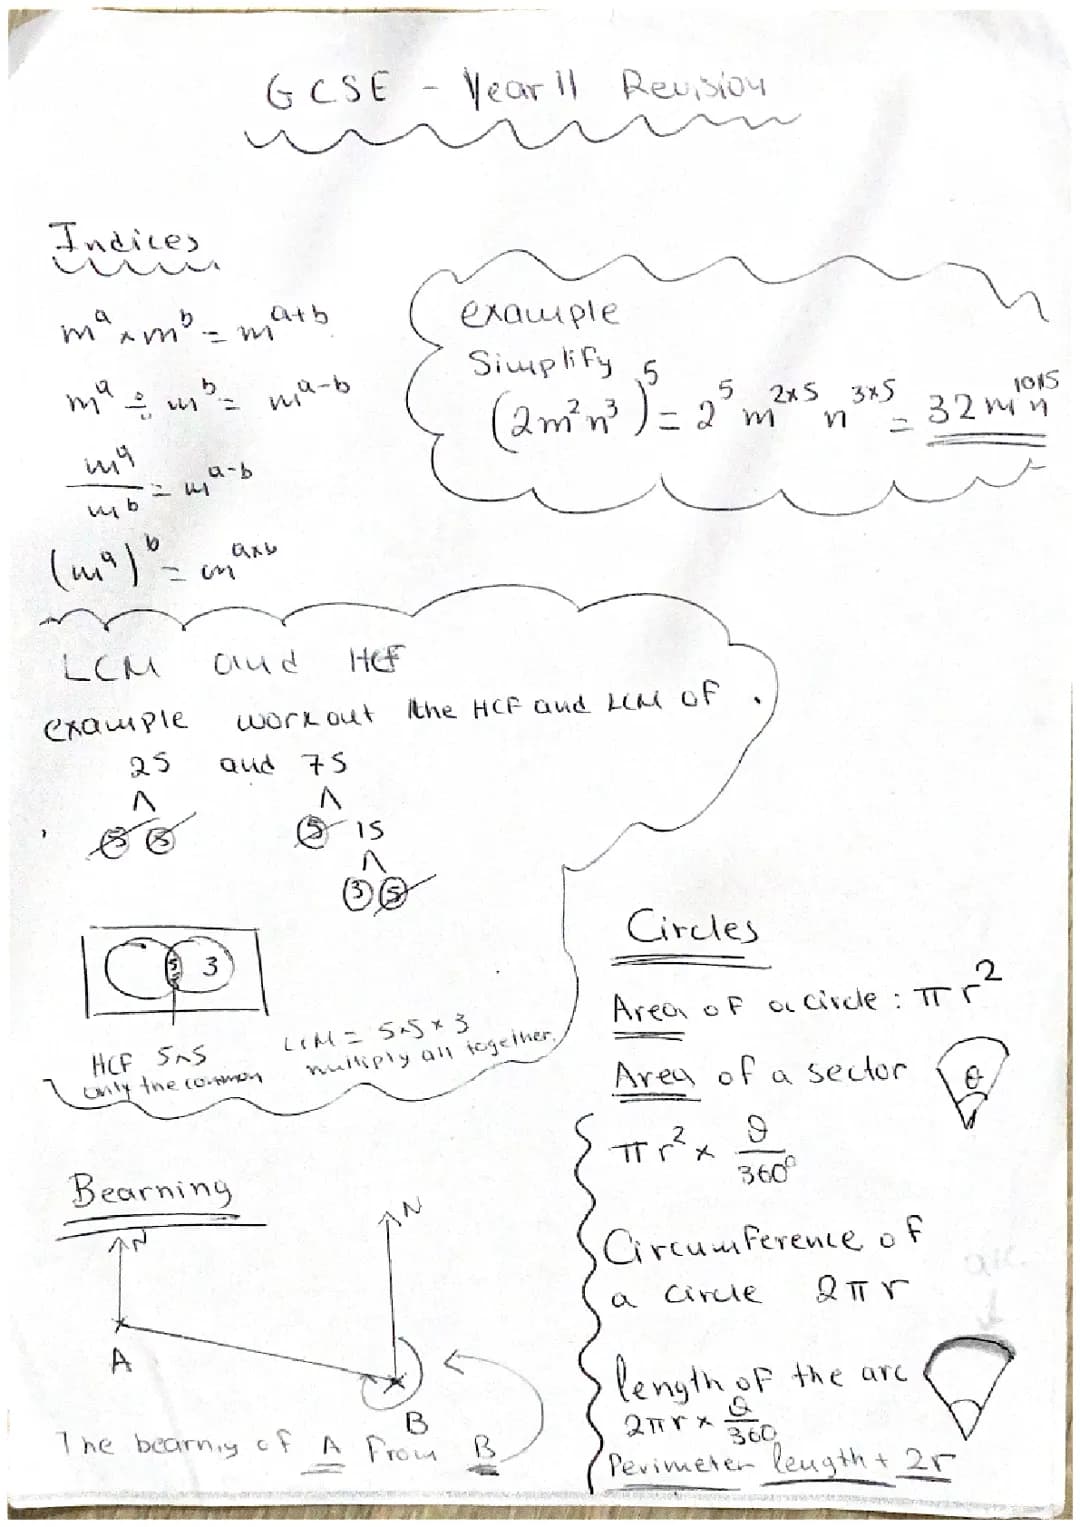 GCSE - Year 11 Revision
Indices
mᵃ × mᵇ = mᵃ⁺ᵇ
mᵃ ÷ mᵇ = mᵃ⁻ᵇ
mᵃ/mᵇ = mᵃ⁻ᵇ
(mᵃ)ᵇ = mᵃˣᵇ
example
Simplify
(2m²n³)⁵ = 2⁵ m²ˣ⁵ n³ˣ⁵ = 32m¹⁰n¹⁵
LCM and HCF
example workout the HCF and LCM of
25 and 75
5 5
5 15
3 5
5 5 3
HCF 5×5
only the common
LCM = 5×5×3
multiply all together.
Bearning
N N
A
B
The bearniy of A from B
Circles
Area of a circle : πr²
Area of a sector
θ
πr² × θ/360°
Circumference of
a circle 2πr
arc
length of the arc
2πr × θ/360
Perimeter length + 2r